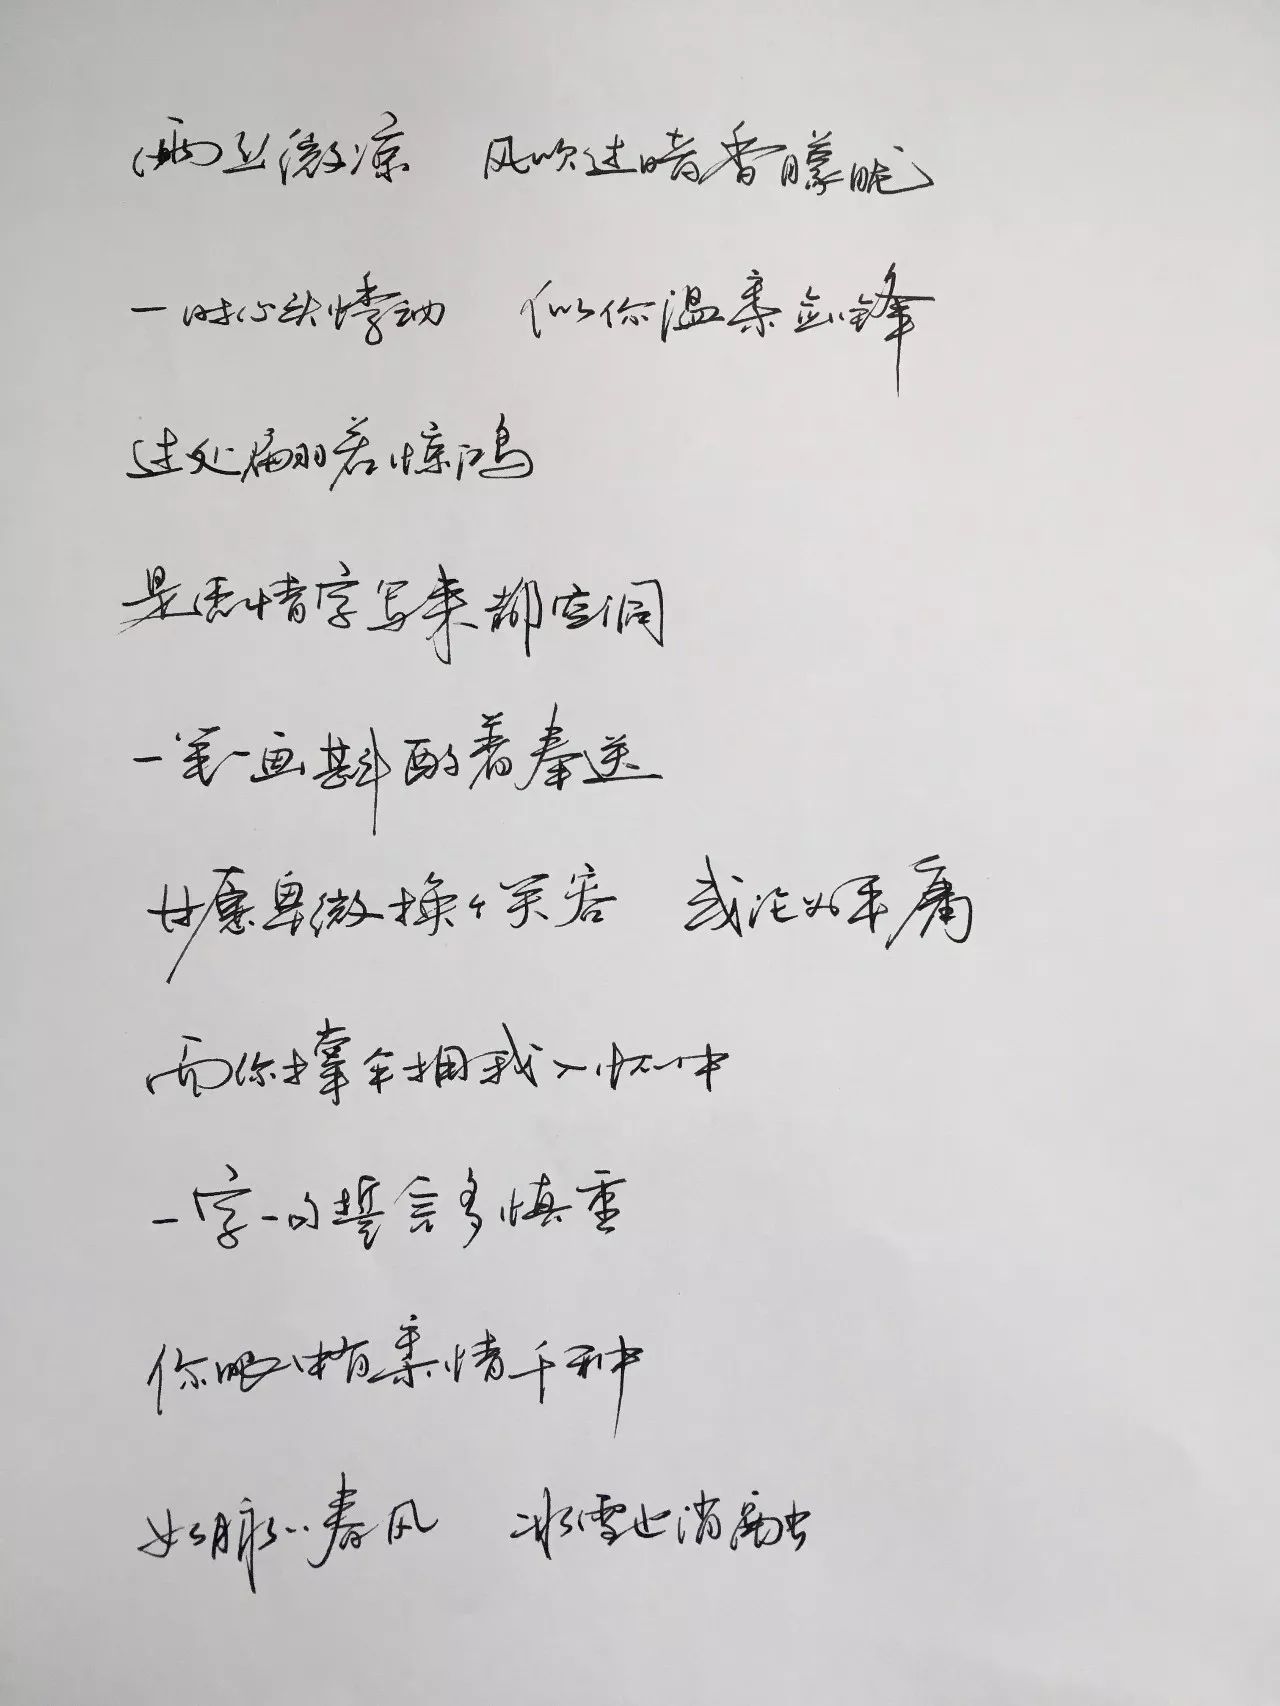 雨丝微凉 风吹过暗香朦胧
一时心头悸动 似你温柔剑锋
过处翩若惊鸿
是否情字写来都空洞
一笔一画斟酌着奉送
甘愿卑微换个笑容 或沦为平庸
而你撑伞拥我入怀中
一字一句誓言多慎重
你眼中有柔情千种
如脉脉春风 冰雪也消融